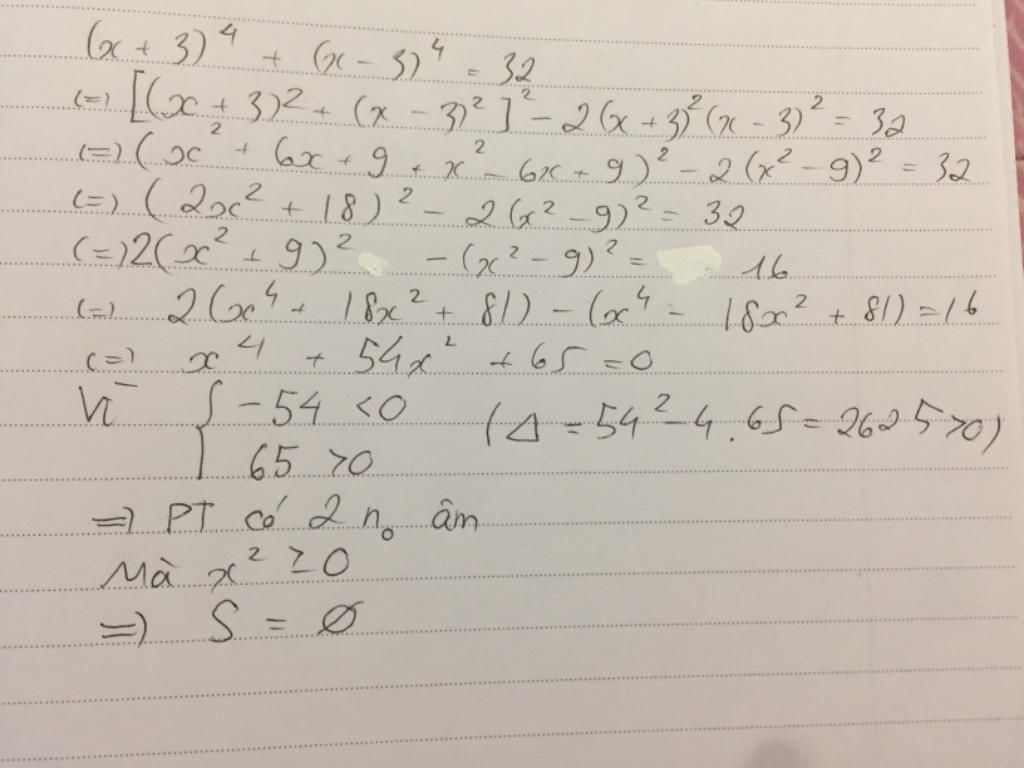 (x + 3)⁴ + (x - 3)⁴ = 32
(=) [(x + 3)² + (x - 3)²]² - 2(x + 3)²(x - 3)² = 32
(=) (x² + 6x + 9 + x² - 6x + 9)² - 2(x² - 9)² = 32
(=) (2x² + 18)² - 2(x² - 9)² = 32
(=) 2(x² + 9)² - (x² - 9)² = 16
(=) 2(x⁴ + 18x² + 81) - (x⁴ - 18x² + 81) = 16
(=) x⁴ + 54x² + 65 = 0
Vì { -54 < 0 (Δ = 54² - 4.65 = 2625 > 0)
65 > 0
=) PT có 2 n₀ âm
Mà x² ≥ 0
=) S = Ø